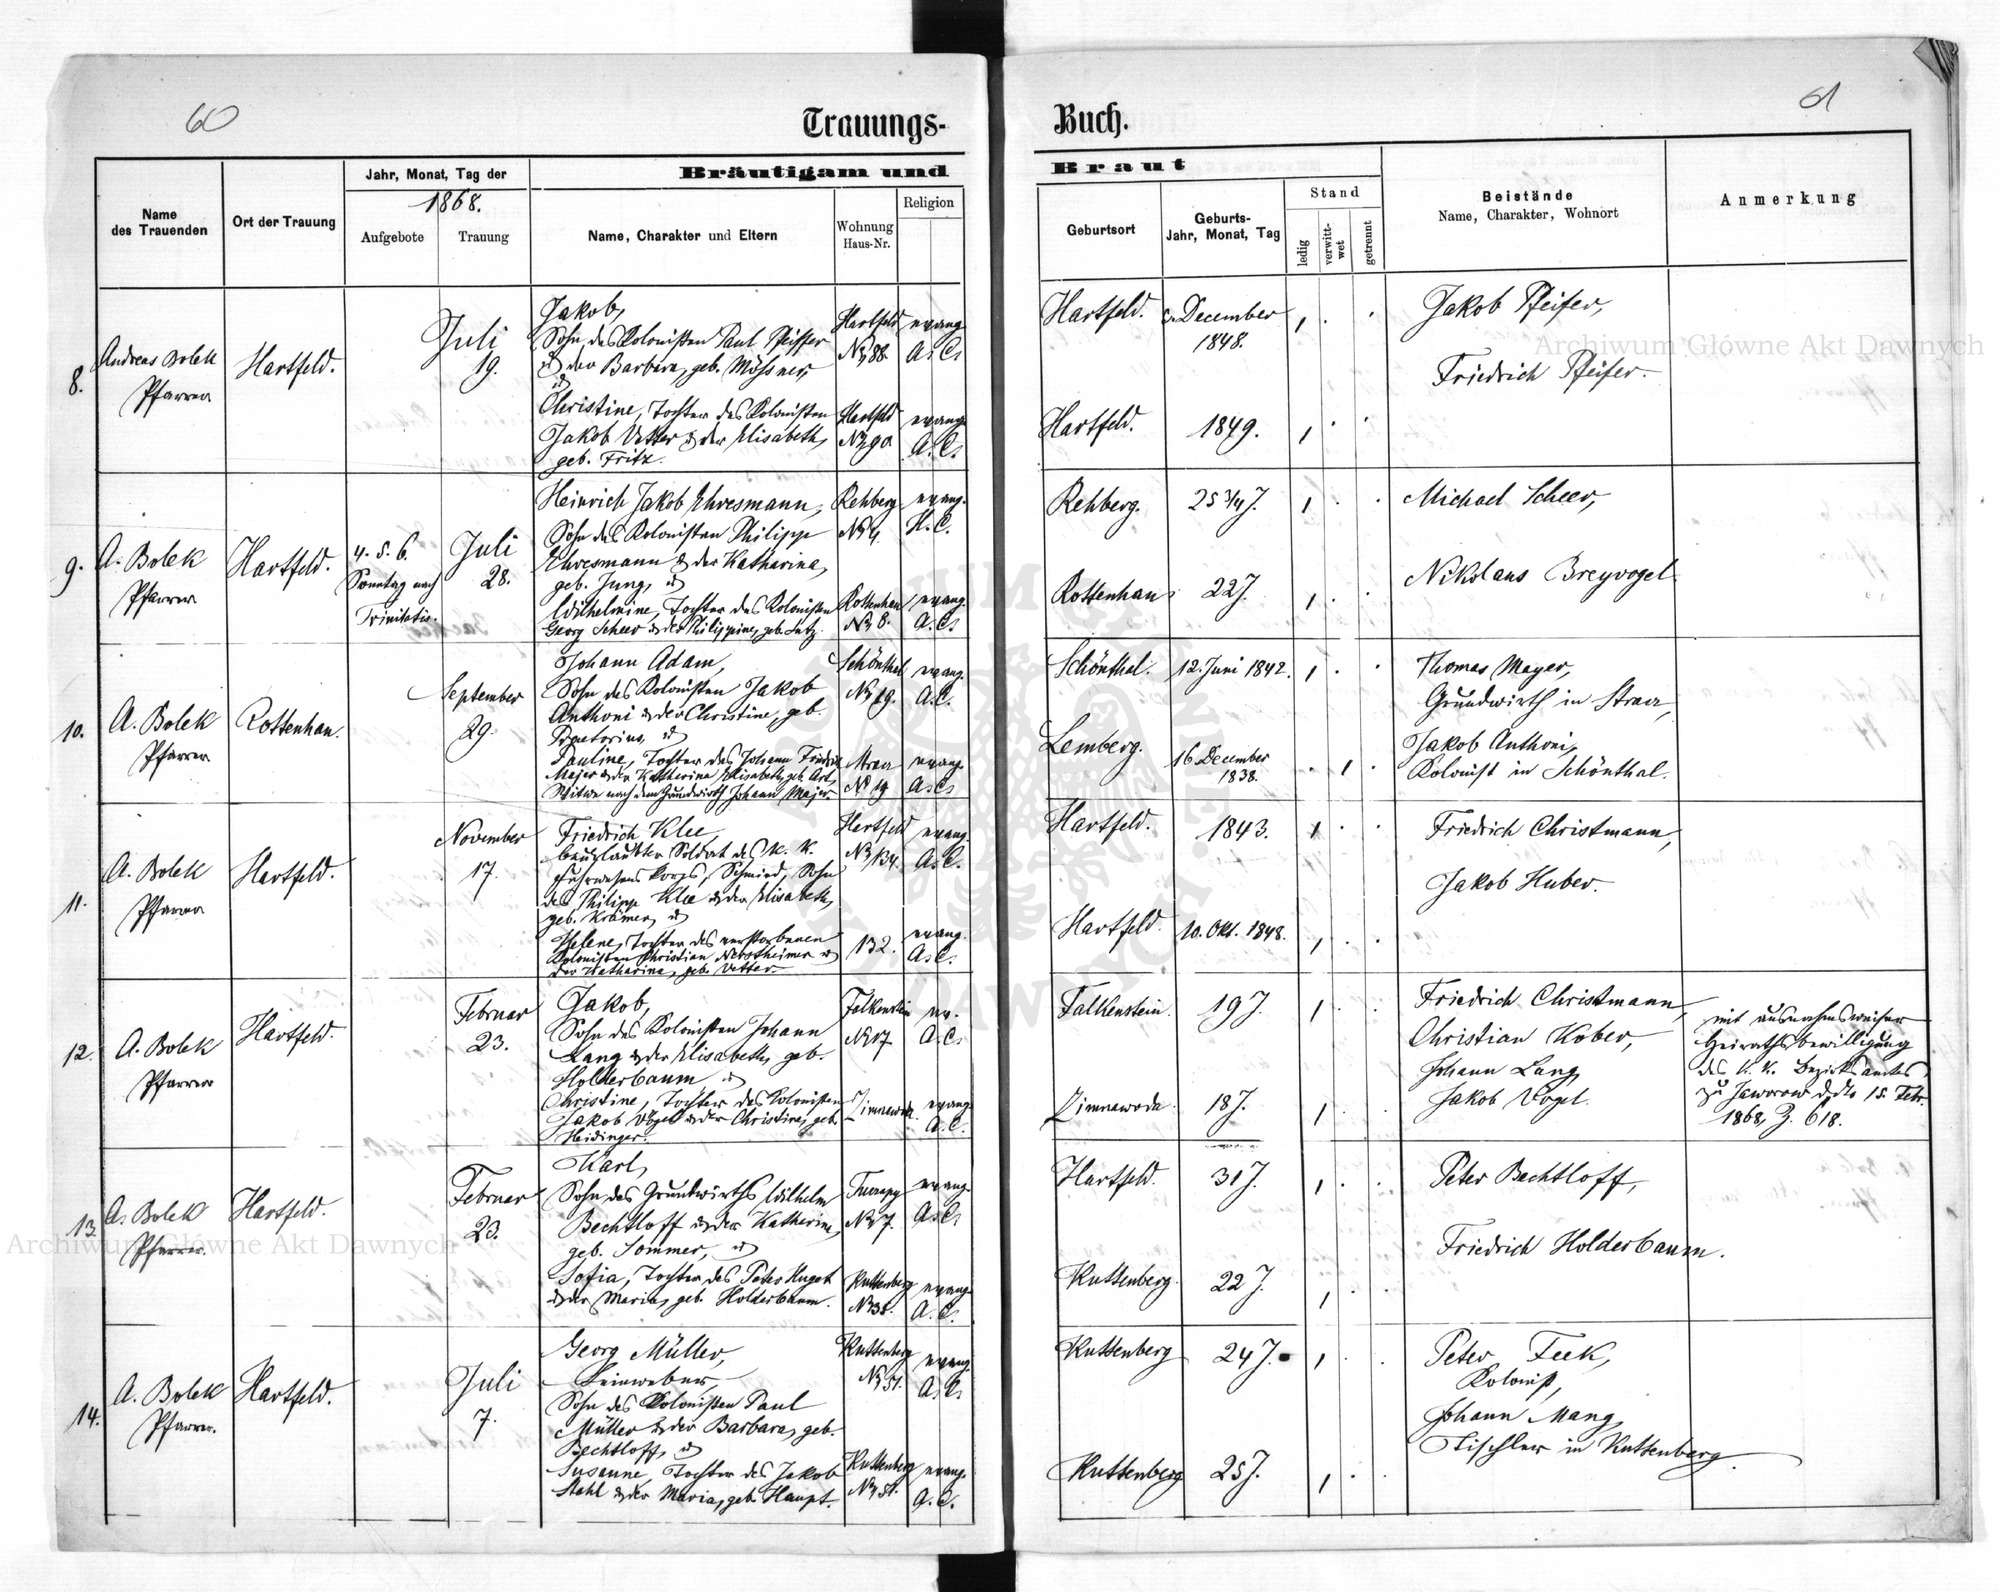 60
Trauungs-
Buch.
61
Name
des Trauenden
Ort der Trauung
Jahr, Monat, Tag der
1868.
Aufgebote
Trauung
Bräutigam und
Name, Charakter und Eltern
Wohnung
Haus-Nr.
Religion
Braut
Geburtsort
Geburts-
Jahr, Monat, Tag
Stand
ledig
verwitt-
wet
getrennt
Beistände
Name, Charakter, Wohnort
Anmerkung
8.
Andreas Bolek
Pfarrer
Hartfeld.
Juli
19.
Jakob,
Sohn des Kolonisten Paul Pfeiffer
& der Barbara, geb. Mössner,
&
Christine, Tochter des Kolonisten
Jakob Vetter & der Elisabeth,
geb. Fritz.
Hartfeld
Nr 88.
evang.
A. C.
Hartfeld
Nr 90
evang.
A. C.
Hartfeld.
December
1848.
Hartfeld.
1849.
Jakob Pfeifer,
Friedrich Pfeifer.
9.
A. Bolek
Pfarrer
Hartfeld.
4. 5. 6.
Sonntag nach
Trinitatis.
Juli
28.
Heinrich Jakob Ehresmann,
Sohn des Kolonisten Philipp
Ehresmann & der Katharina,
geb. Jung, &
Wilhelmine, Tochter des Kolonisten
Georg Scheer & der Philippine, geb. Lutz.
Rehberg
Nr 4.
evang.
H. C.
Rottenhan
Nr 8.
evang.
A. C.
Rehberg.
25 3/4 J.
Rottenhan
22 J.
Michael Scheer,
Nikolaus Breyvogel
10.
A. Bolek
Pfarrer
Rottenhan.
September
29.
Johann Adam,
Sohn des Kolonisten Jakob
Anthoni & der Christine, geb.
Praetorius, &
Pauline, Tochter des Johann Friedrich
Majer & der Katharina Elisabeth, geb. Art,
Witwe nach dem Grundwirth Johann Majer.
Schönthal
Nr 19.
evang.
A. C.
Nr 19
evang.
A. C.
Schönthal.
12. Juni 1842.
Lemberg.
16 December
1838.
Thomas Mayer,
Grundwirth in
Jakob Anthoni,
Kolonist in Schönthal.
11.
A. Bolek
Pfarrer
Hartfeld.
November
17.
Friedrich Klee,
beurlaubter Soldat des k. k.
Fuhrwesens Korps, Schmied, Sohn
des Philipp Klee & der Elisabeth,
geb. Krämer, &
Helene, Tochter des verstorbenen
Kolonisten Christian &
der Katharina, geb. Vetter.
Hartfeld
Nr 134.
evang.
A. C.
132.
evang.
A. C.
Hartfeld.
1843.
Hartfeld.
10. Okt. 1848.
Friedrich Christmann,
Jakob Huber.
12.
A. Bolek
Pfarrer
Hartfeld.
Februar
23.
Jakob,
Sohn des Kolonisten Johann
Lang & der Elisabeth, geb.
Holderbaum &
Christine, Tochter des Kolonisten
Jakob Vogel & der Christine, geb.
Heidinger.
Falkenstein
Nr 17
ev.
A. C.
Zimnawoda
evang.
A. C.
Falkenstein.
19 J.
Zimnawoda.
18 J.
Friedrich Christmann,
Christian Kober,
Johann Lang,
Jakob Vogel.
mit ausnahmsweiser
Heirathsbewilligung
des k. k. Bezirksamtes
zu Jaworow ddto 15. Febr.
1868, Z. 618.
13.
A. Bolek
Pfarrer.
Hartfeld.
Februar
23.
Karl,
Sohn des Grundwirths Wilhelm
Bechtloff & der Katharina,
geb. Sommer, &
Sofia, Tochter des Peter Huget
& der Maria, geb. Holderbaum.
Nr 7.
evang.
A. C.
Kuttenberg
Nr 38.
evang.
A. C.
Hartfeld.
31 J.
Kuttenberg.
22 J.
Peter Bechtloff,
Friedrich Holderbaum.
14.
A. Bolek
Pfarrer.
Hartfeld.
Juli
7.
Georg Müller,
Leinweber,
Sohn des Kolonisten Paul
Müller & der Barbara, geb.
Bechtloff, &
Susanne, Tochter des Jakob
Stahl & der Maria, geb. Haupt.
Kuttenberg
Nr 51.
evang.
A. C.
Kuttenberg
Nr 51.
evang.
A. C.
Kuttenberg
24 J.
Kuttenberg
25 J.
Peter Feek,
Kolonist,
Johann Mang,
Tischler in Kuttenberg.
Archiwum Główne Akt Dawnych
Archiwum Główne Akt Dawnych